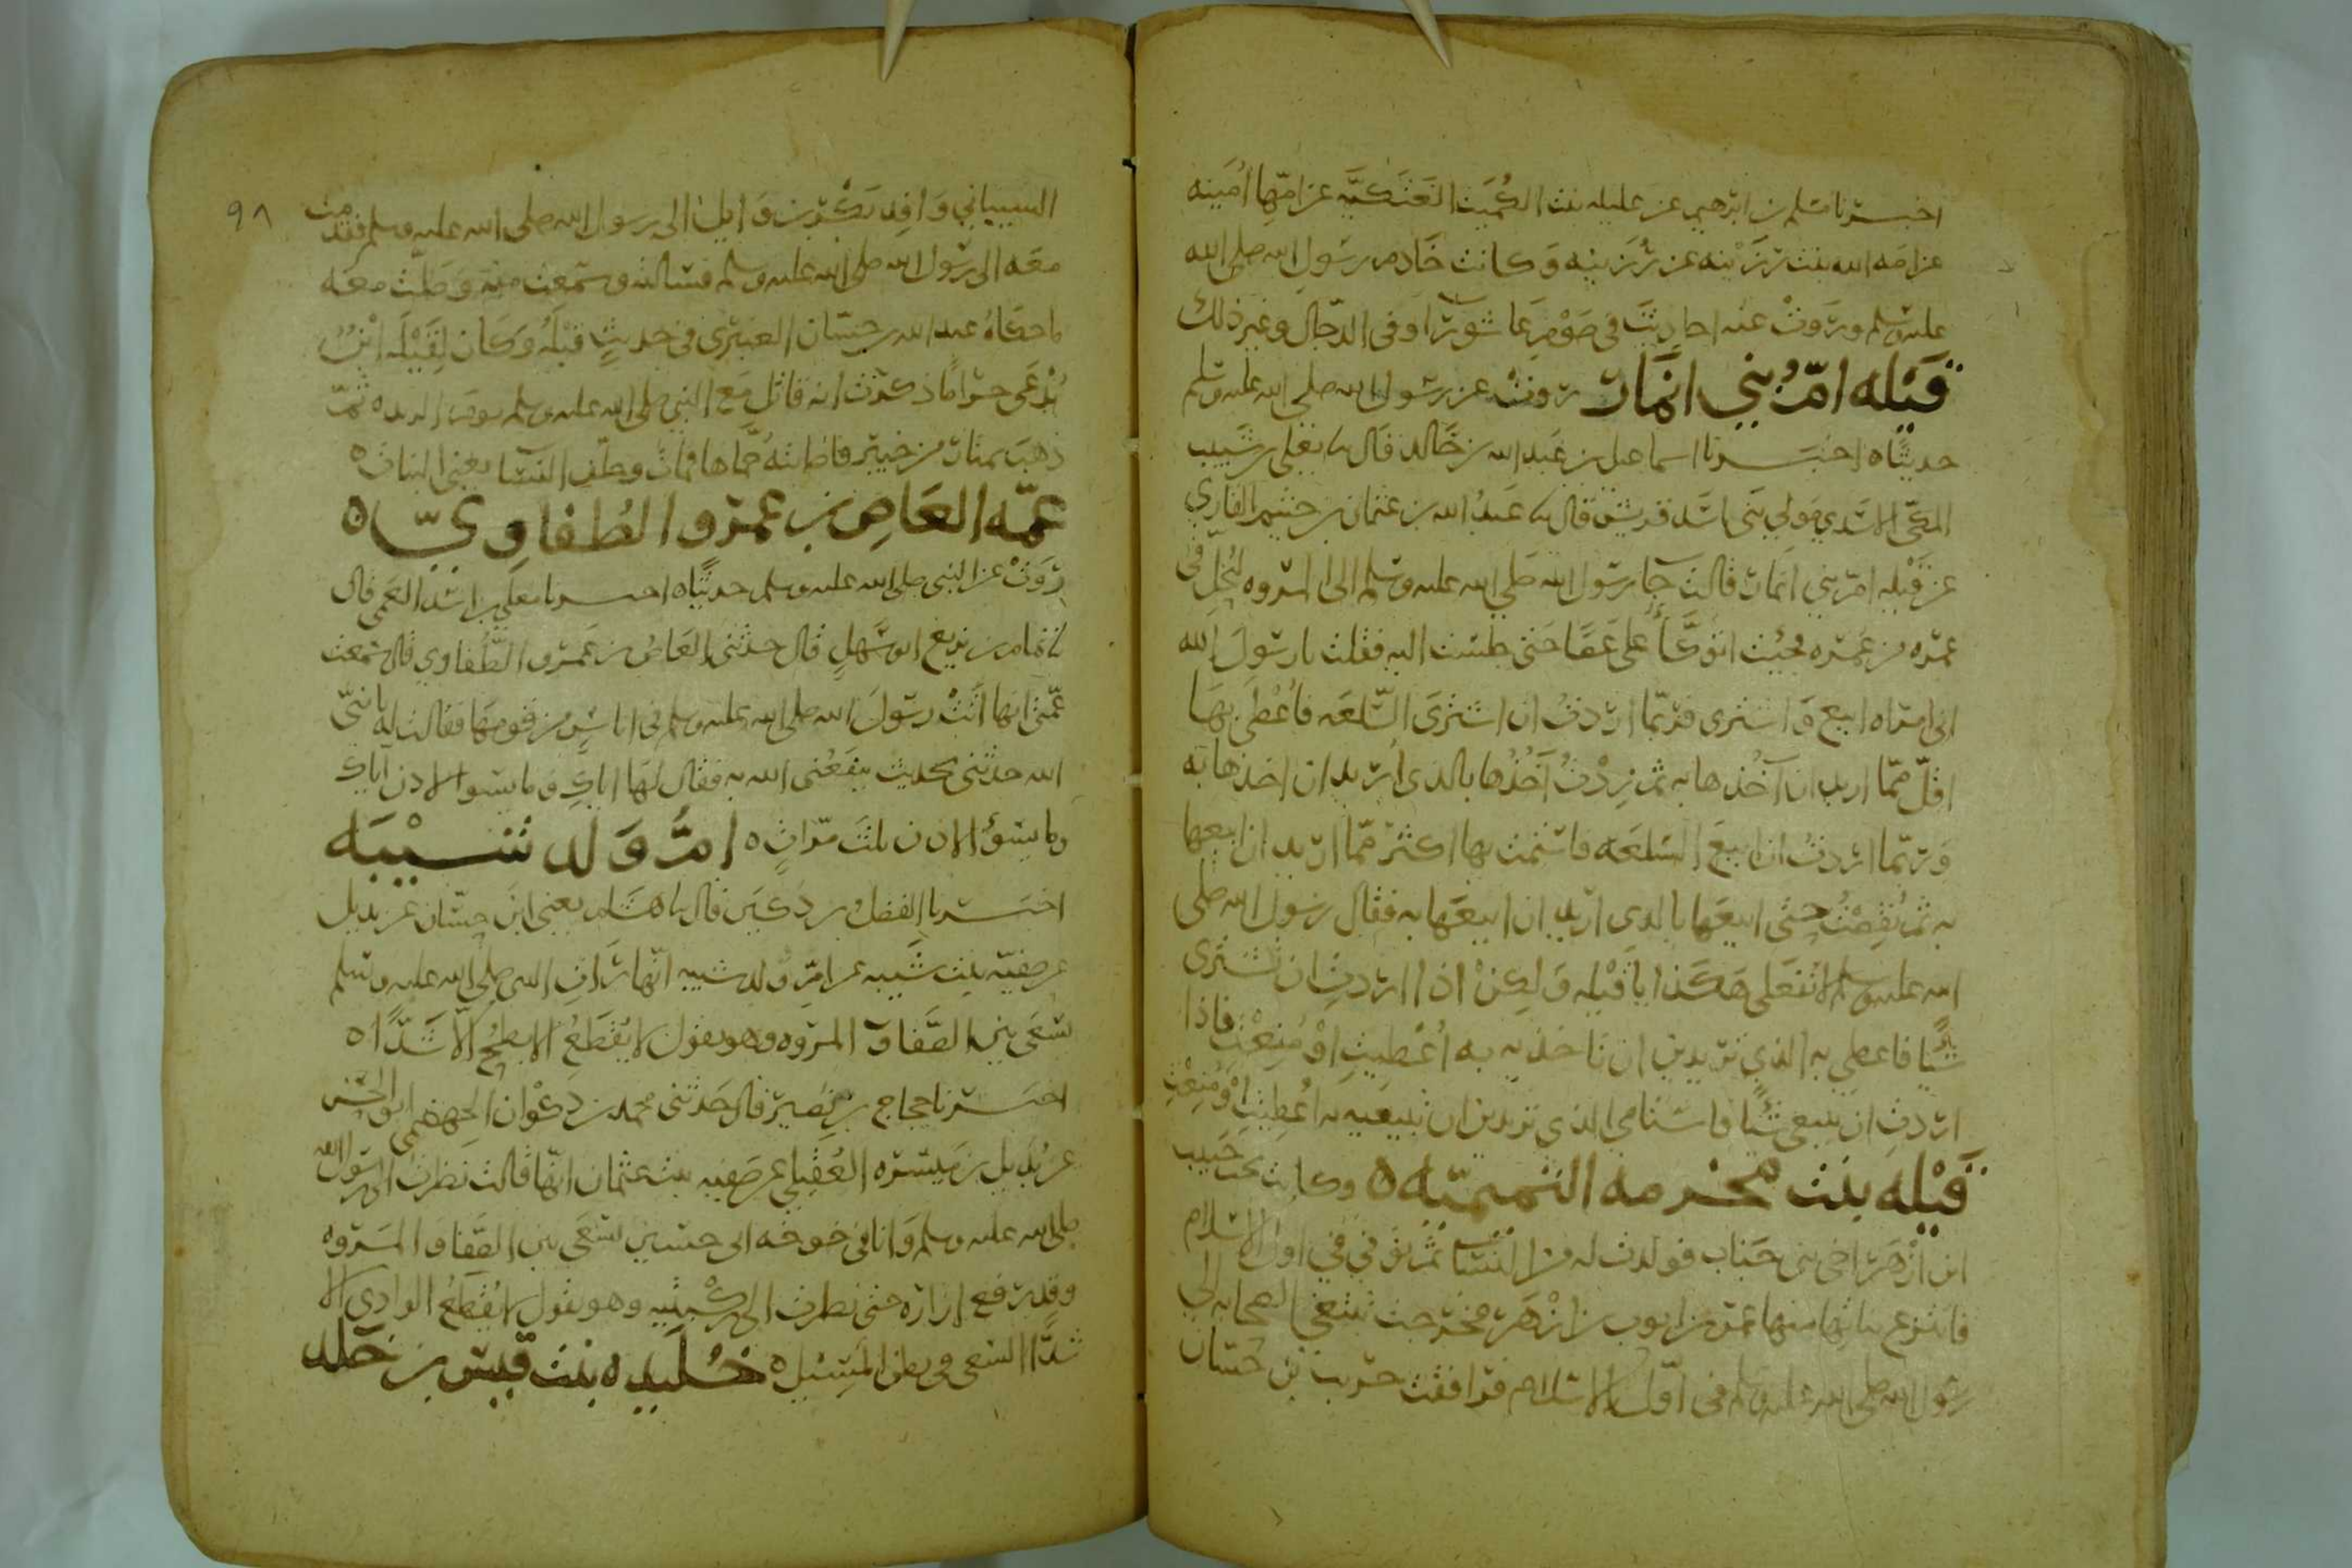 اخبرنا مسلم بن ابرهيم عن عليله بنت الكُميت العَتَكيَّه عن امّها اُمَينه
عن امَه الله بنت رُزَيْنه عن رُزَينه وَكانت خَادم رسَولِ الله صلى الله
عليه وسلم ورَوتْ عنه احاديثَ في صَوْمِ عَاشورَا وفي الدجّال وغير ذلك
قَيْله امّ بني انمَار روتْ عن رسول الله صلى الله عليه وسلم
حديثًا ه اخبَرنا اسماعيل بن عَبد الله بن خَالد قال نا يعلى بن شَبيب
المكّي الاسَدي مَولى بني اسَد قريش قال نا عَبدُ الله بن عثمان بن خثيم القاري
عن قَيْله امّ بني انمَار قالت جَا رسَول الله صَلى الله عليه وسلم الى المروه ليُحلّ في
عمرَه من عُمَره فجئت اتوَكَّأُ على عَصًا حَتى جلسْت اليه فقلت يا رسَولَ الله
اني امرَاه ابيع وَاشترى فرُبّما ارَدتُ ان اشترَى السِّلعَه فاُعْطى بهَا
اقلّ ممّا اريد ان آخُذها به ثم زِدْتُ آخُذُها بالذى اُريد ان اخذها به
وَربّما ارَدتُ ان ابيعَ السلعَه فاستمت بها اكثرَ ممّا اريد ان ابيعها
به ثم نقصْتُ حتى ابيعَها بالذى اريد ان ابيعَها به فقال رسَول الله صلى
الله عليه وسلم لا تفعَلي هكَذا يا قَيْله وَلكِنْ اذا ارَدتِ ان تشتَرى
شيًّا فاعطِي به الذي تريدين ان تاخذيه به اُعْطِيتِ اوْ مُنِعْتِ فاذا
ارَدتِ ان تبيعي شئًا فاستامي الذي تريدين ان تبيعيه به اُعطِيتِ اوْ مُنِعْتِ
قَيْله بنت مَخرمه التميميّه ه وكانت تحت حَبيب
ابن ازْهَر اخى بنى جَناب فولدت له من النسَا ثم توُفي في اول الاسْلام
فانتزع بناتها منها عمرَ بن ايوب بن ازْهَر فخرَجت تبتغي الصحابه الى
رسول الله صلى الله عليه وسلم في اوّل الاسْلام فرَافقت حرَيث بن حَسّان
٩٨
الشيباني وَافِد بَكْر بن وَايل الى رسول الله صلى الله عليه وسلم فقدمت
معَه الى رسول الله صلى الله عليه وسلم فسَالته وسَمعت منه وَصَلّت معَه
ما حكَاهُ عبد الله بن حَسّان العنبَري في حَديثِ قَيْلَه وَكَان لِقَيْلَه ابْنٌ
يُدْعَى حِزَامًا ذكرَت انه قاتل مَع النبي صلى الله عليه وسلم يوم الربذه ثمّ
ذهبَ يمتارُ من خيبَر فاصَابتهُ حُمّاها فماتَ وخلّف النسَا يعني البناتِ ه
عمّه العَاصِ بن عمرو الطُفاوِيّ ه
رَوَتْ عن النبي صلى الله عليه وسلم حديثًا ه اخبرنا معلى بن اسَد العَمّى قال
نا تمام بن بزيغ ابو سَهلٍ قال حدثنى العَاصُ بن عَمرو الطُّفاوي قال سمعت
عَمّتى انهَا اَتَتْ رسَولَ الله صلى الله عليه وسلم في اناسٍ من قومهَا فقالت له يا نبىّ
الله حدّثنى بحديث ينفعُنى الله به فقال لهَا اياكِ وَما يسَوُ الاذن اياكِ
وما يسَوُ الاذن ثلث مرّاتٍ ه امّ وَلد شَيْبَه
اخبَرنا الفضل بن دكَين قال نا هشَام يعنى ابن حسّان عن بديل
عن صَفيّه بنت شَيبه عن امِّ وَلد شيبه انّها رَاتِ النبى صلى الله عليه وسلم
يَسْعَى بين الصَّفا وَالمروَه وهو يقول لا يُقطَعُ الابطَحُ الّا شَدًّا ه
اخبَرنا حجاج بن نُصَير قال حَدثنى محمد بن ذَكوْان الجَهضَمى ابو الحسَن
عن بُديل بن مَيسرَه العُقيلي عن صَفيه بنت عثمان انّها قالت نظرت الى رسَول الله
صلى الله عليه وسلم وَانا في خوخه ابى حسين يَسْعَى بين الصَّفا وَ المروَه
وقد رَفع اِزارَه حتى نظرت الى ركبتيه وهو يقول لا يُقطعُ الوادي الا
شدًّا السَعى في بطن المَسِيل ه خُلَيده بنت قيس بن خَلد